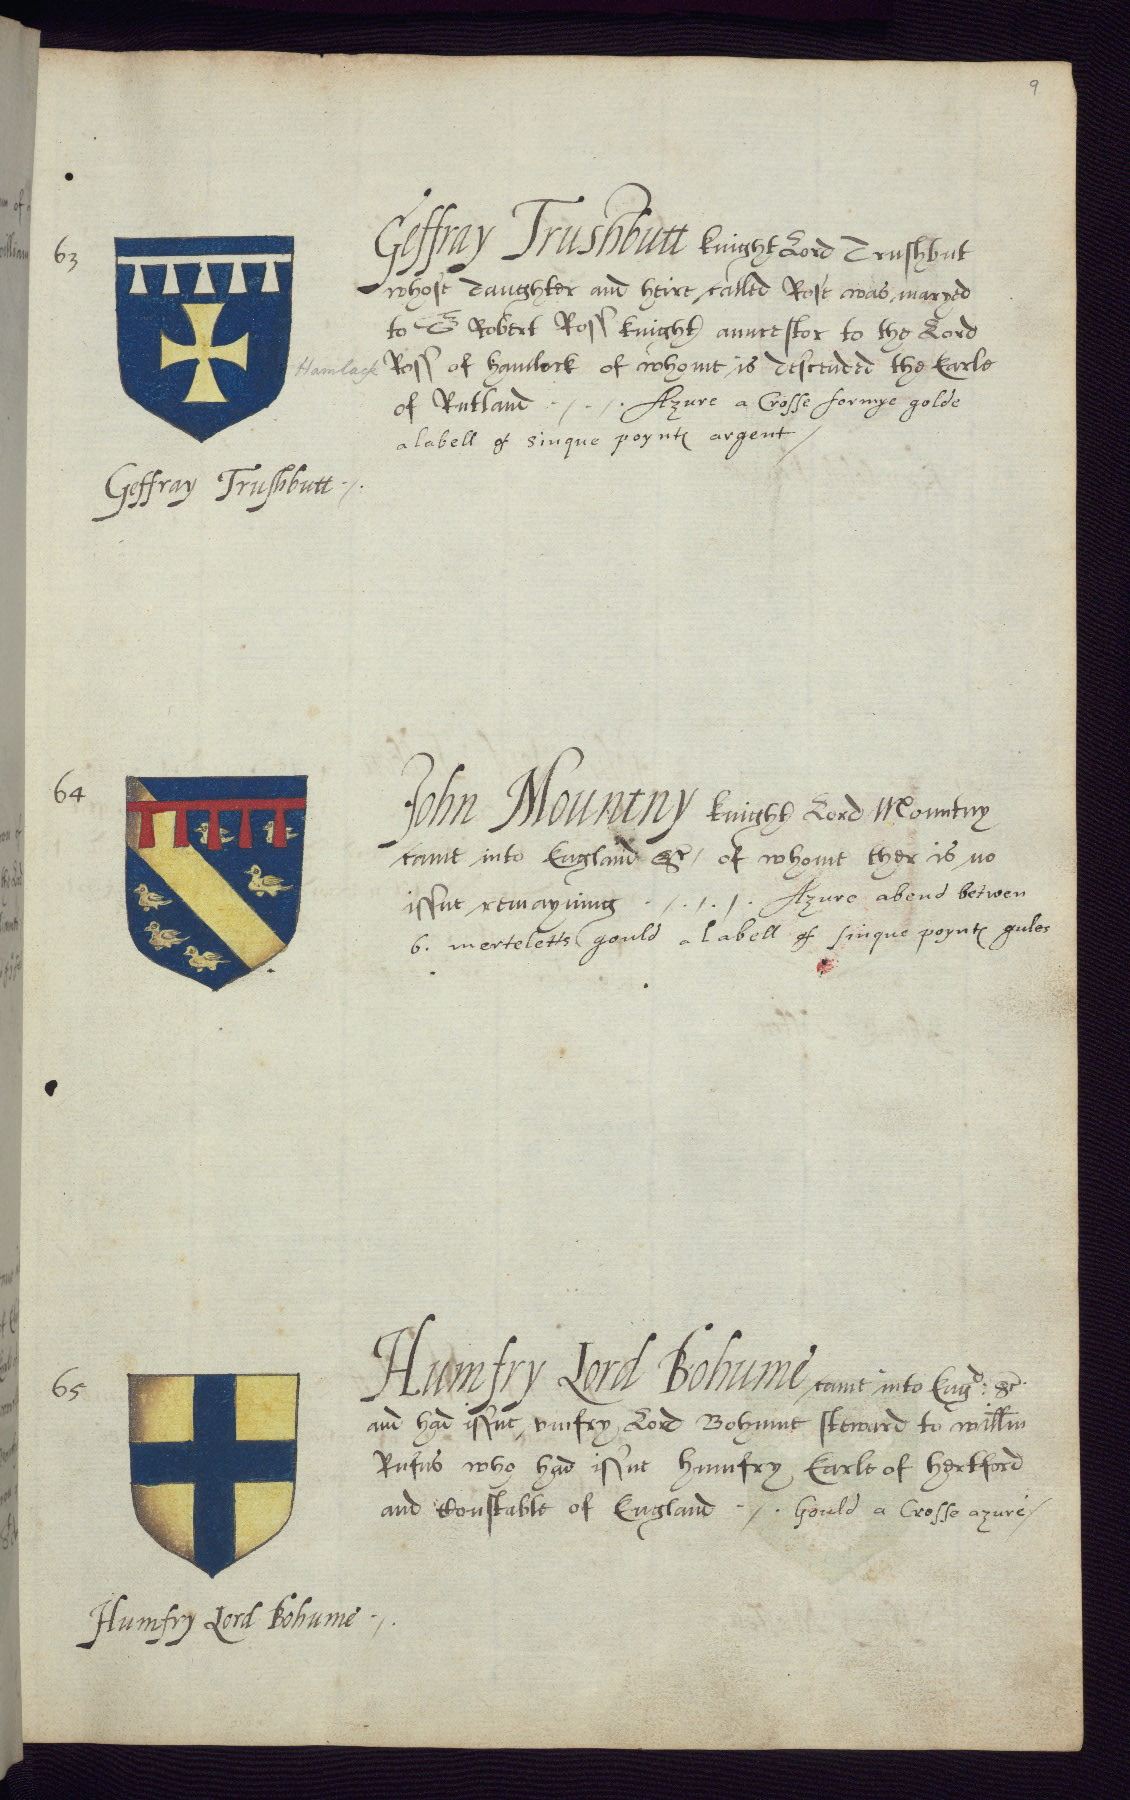 9
63
Geffray Trushbutt knight Lord Trushbut
whose daughter and heire called Rose was maryed
to Sr Robert Ross knight auncestor to the Lord
Hamlack Ross of hamlock of whome is descended the Earle
of Rutland Azure a Crosse formye golde
a labell of sinque poynts argent
Geffray Trushbutt
64
John Mountny knight Lord Mountny
came into England &c of whome ther is no
issue remayning Azure a bend betwen
6. merteletts gould a labell of sinque poynts gules
65
Humfry Lord Bohume came into Engd: &c
and had issue Umfry Lord Bohume steward to willm
Rufus who had issue humfry Earle of hertford
and Constable of England Gould a Crosse azure
Humfry Lord Bohume